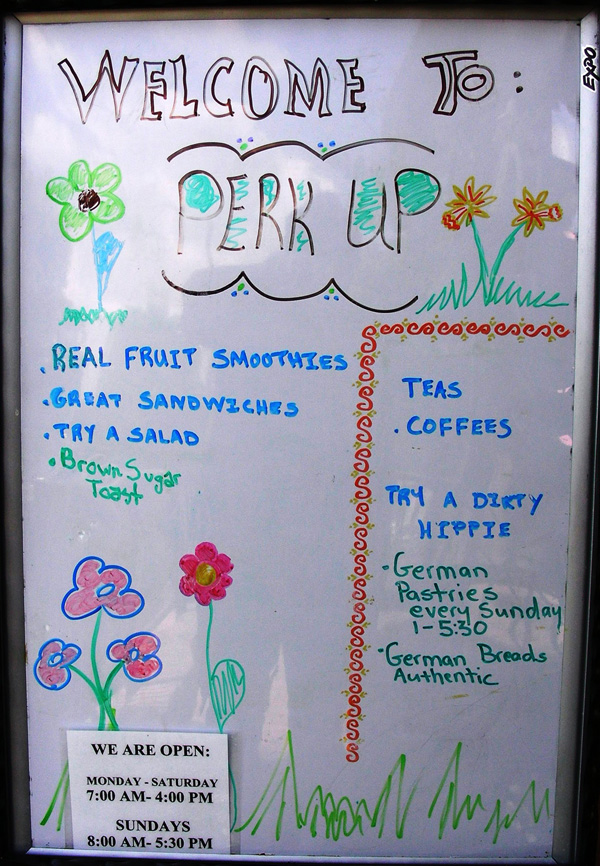 EXPO
WELCOME TO:
PERK UP
. REAL FRUIT SMOOTHIES
. GREAT SANDWICHES
. TRY A SALAD
. Brown Sugar
Toast
TEAS
. COFFEES
TRY A DIRTY
HIPPIE
· German
Pastries
every Sunday
1-5:30
· German Breads
Authentic
WE ARE OPEN:
MONDAY - SATURDAY
7:00 AM- 4:00 PM
SUNDAYS
8:00 AM- 5:30 PM